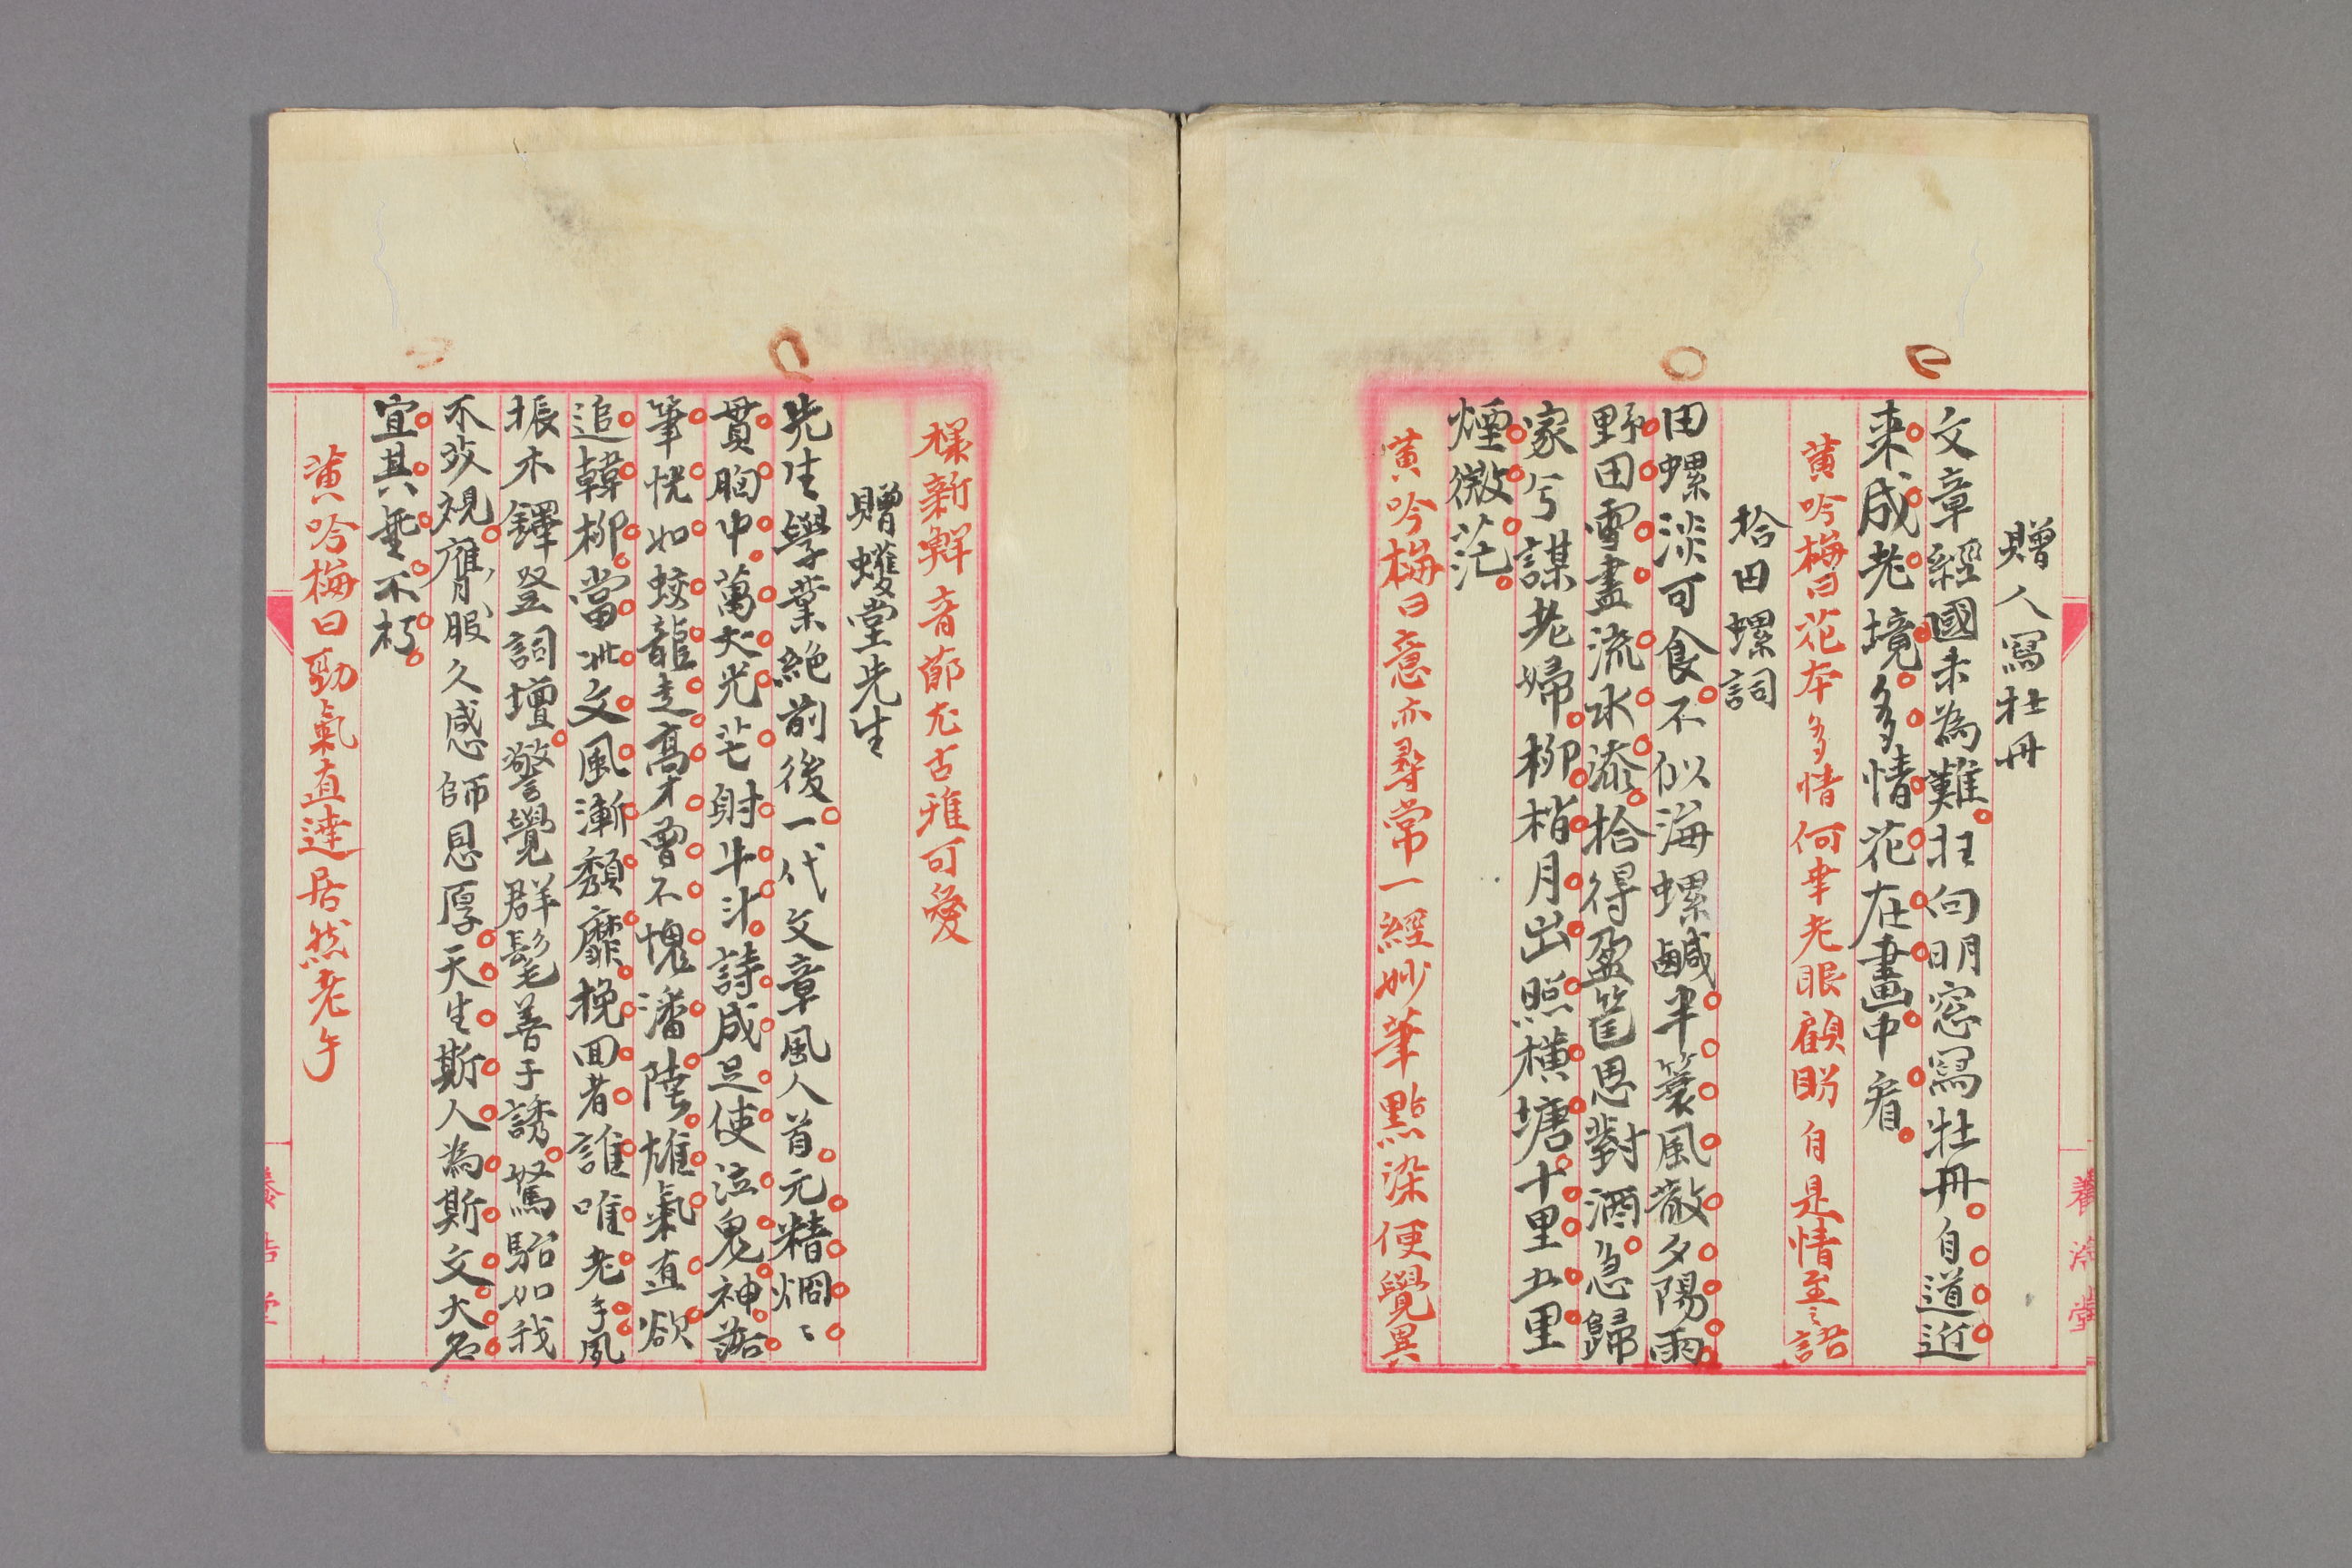 贈人寫牡丹
文章經國未為難狂向明窓寫牡丹自道近
来成老境多情花在畫中看
黄吟梅曰花本多情何事老眼顧盼自是情至之語
拾田螺詞
田螺淡可食不似海螺鹹半簑風散夕陽雨
野田雪盡流水添拾得盈筐思對酒急歸
家兮謀老婦柳梢月出照橫塘十里五里
煙微茫
黄吟梅曰意亦尋常一經妙筆點染便覺異
樣新鮮音節尤古雅可愛
贈蠖堂先生
先生學業絶前後一代文章風人首元精烱々
貫胸中萬丈光芒射牛斗詩成足使泣鬼神落
筆恍如蛟龍走高才曾不愧潘陸雄氣直欲
追韓柳當此文風漸頽靡挽回者誰唯老手夙
振木鐸登詞壇警覺群髦善于誘駑駘如我
不歧視膺服久感師恩厚天生斯人為斯文大名
宜其垂不朽
黄吟梅曰勁氣直達居然老手
養浩堂